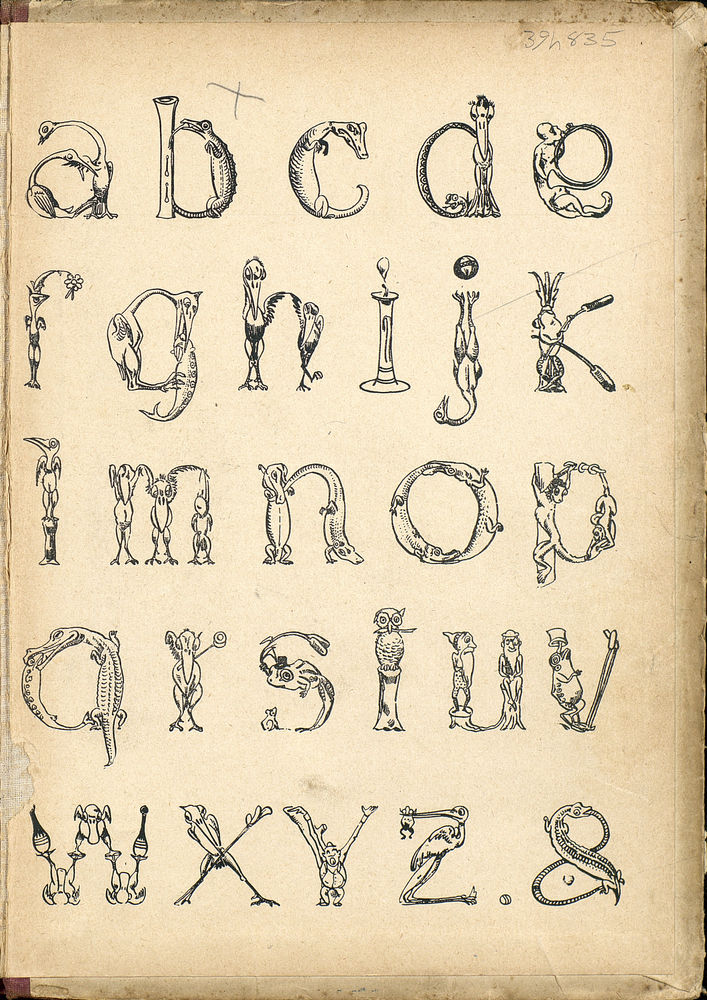 39h835
a b c d e
f g h i j k
l m n o p
q r s t u v
w x y z . &